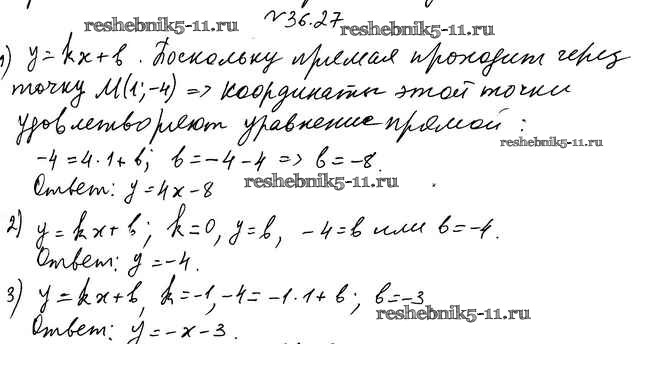 №36.27
reshebnik5-11.ru reshebnik5-11.ru
1) y=kx+b. Поскольку прямая проходит через
точку M(1;-4) => координаты этой точки
удовлетворяют уравнение прямой:
reshebnik5-11.ru
-4=4·1+b; b=-4-4 => b=-8.
Ответ: y=4x-8 reshebnik5-11.ru
2) y=kx+b; k=0, y=b, -4=b или b=-4.
Ответ: y=-4.
3) y=kx+b, k=-1, -4=-1·1+b; b=-3
reshebnik5-11.ru
Ответ: y=-x-3.